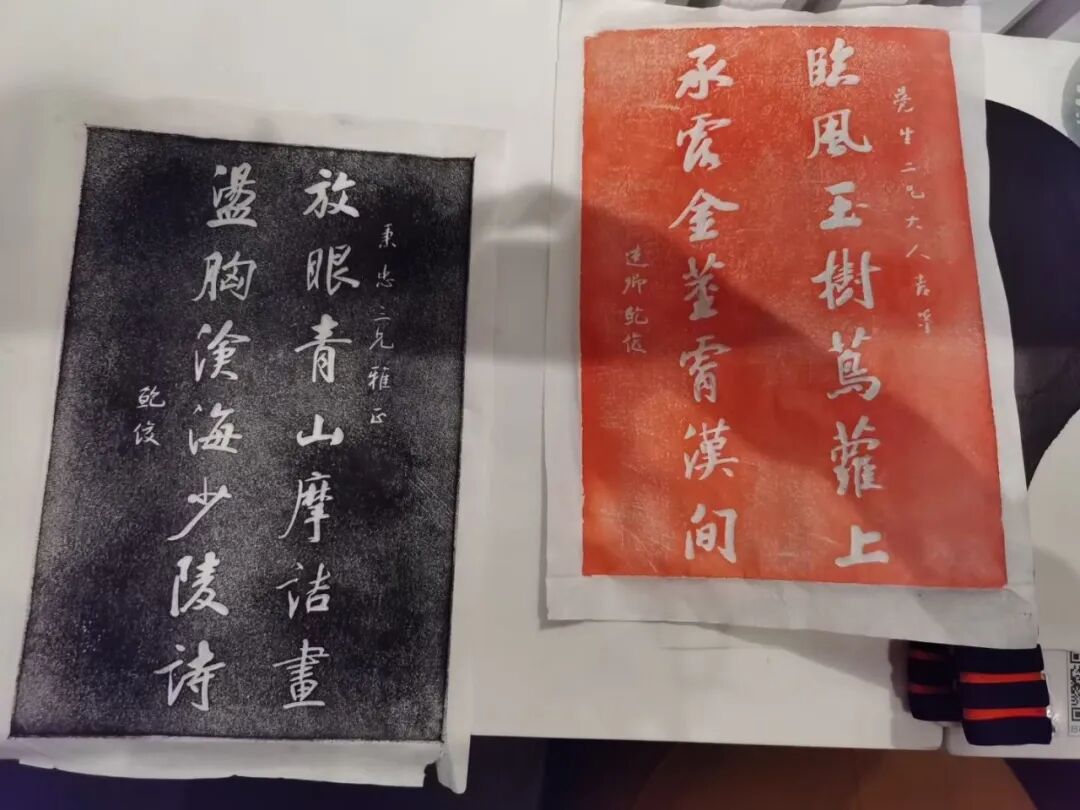 秉忠二兄雅正
放眼青山摩詰畫
盪胸滄海少陵詩
鮑俊
堯生二兄大人吉篆
臨風玉樹蔦蘿上
承露金莖霄漢間
逸卿鮑俊